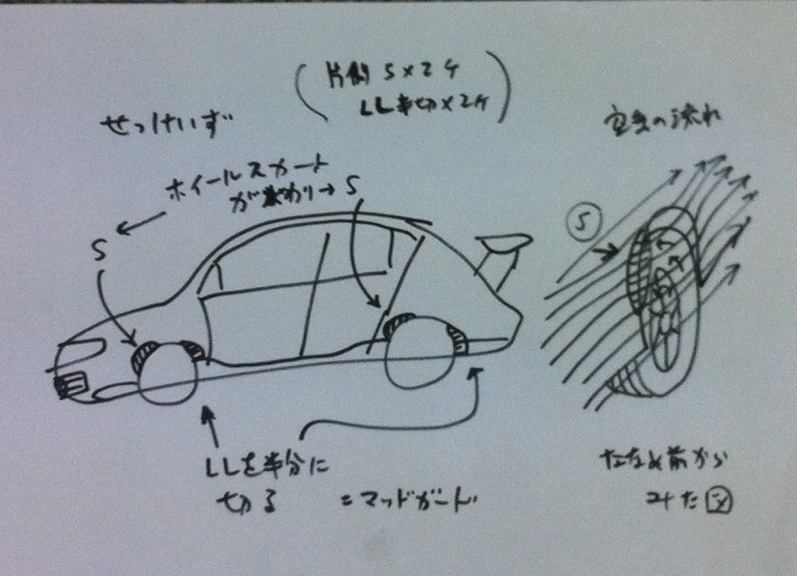 せっけいず
(片側 S×2ケ
LL半切×2ケ)
空気の流れ
ホイールスカート
が変わり→S
S
S
LLを半分に
切る =マッドガード
ななめ前から
みた図